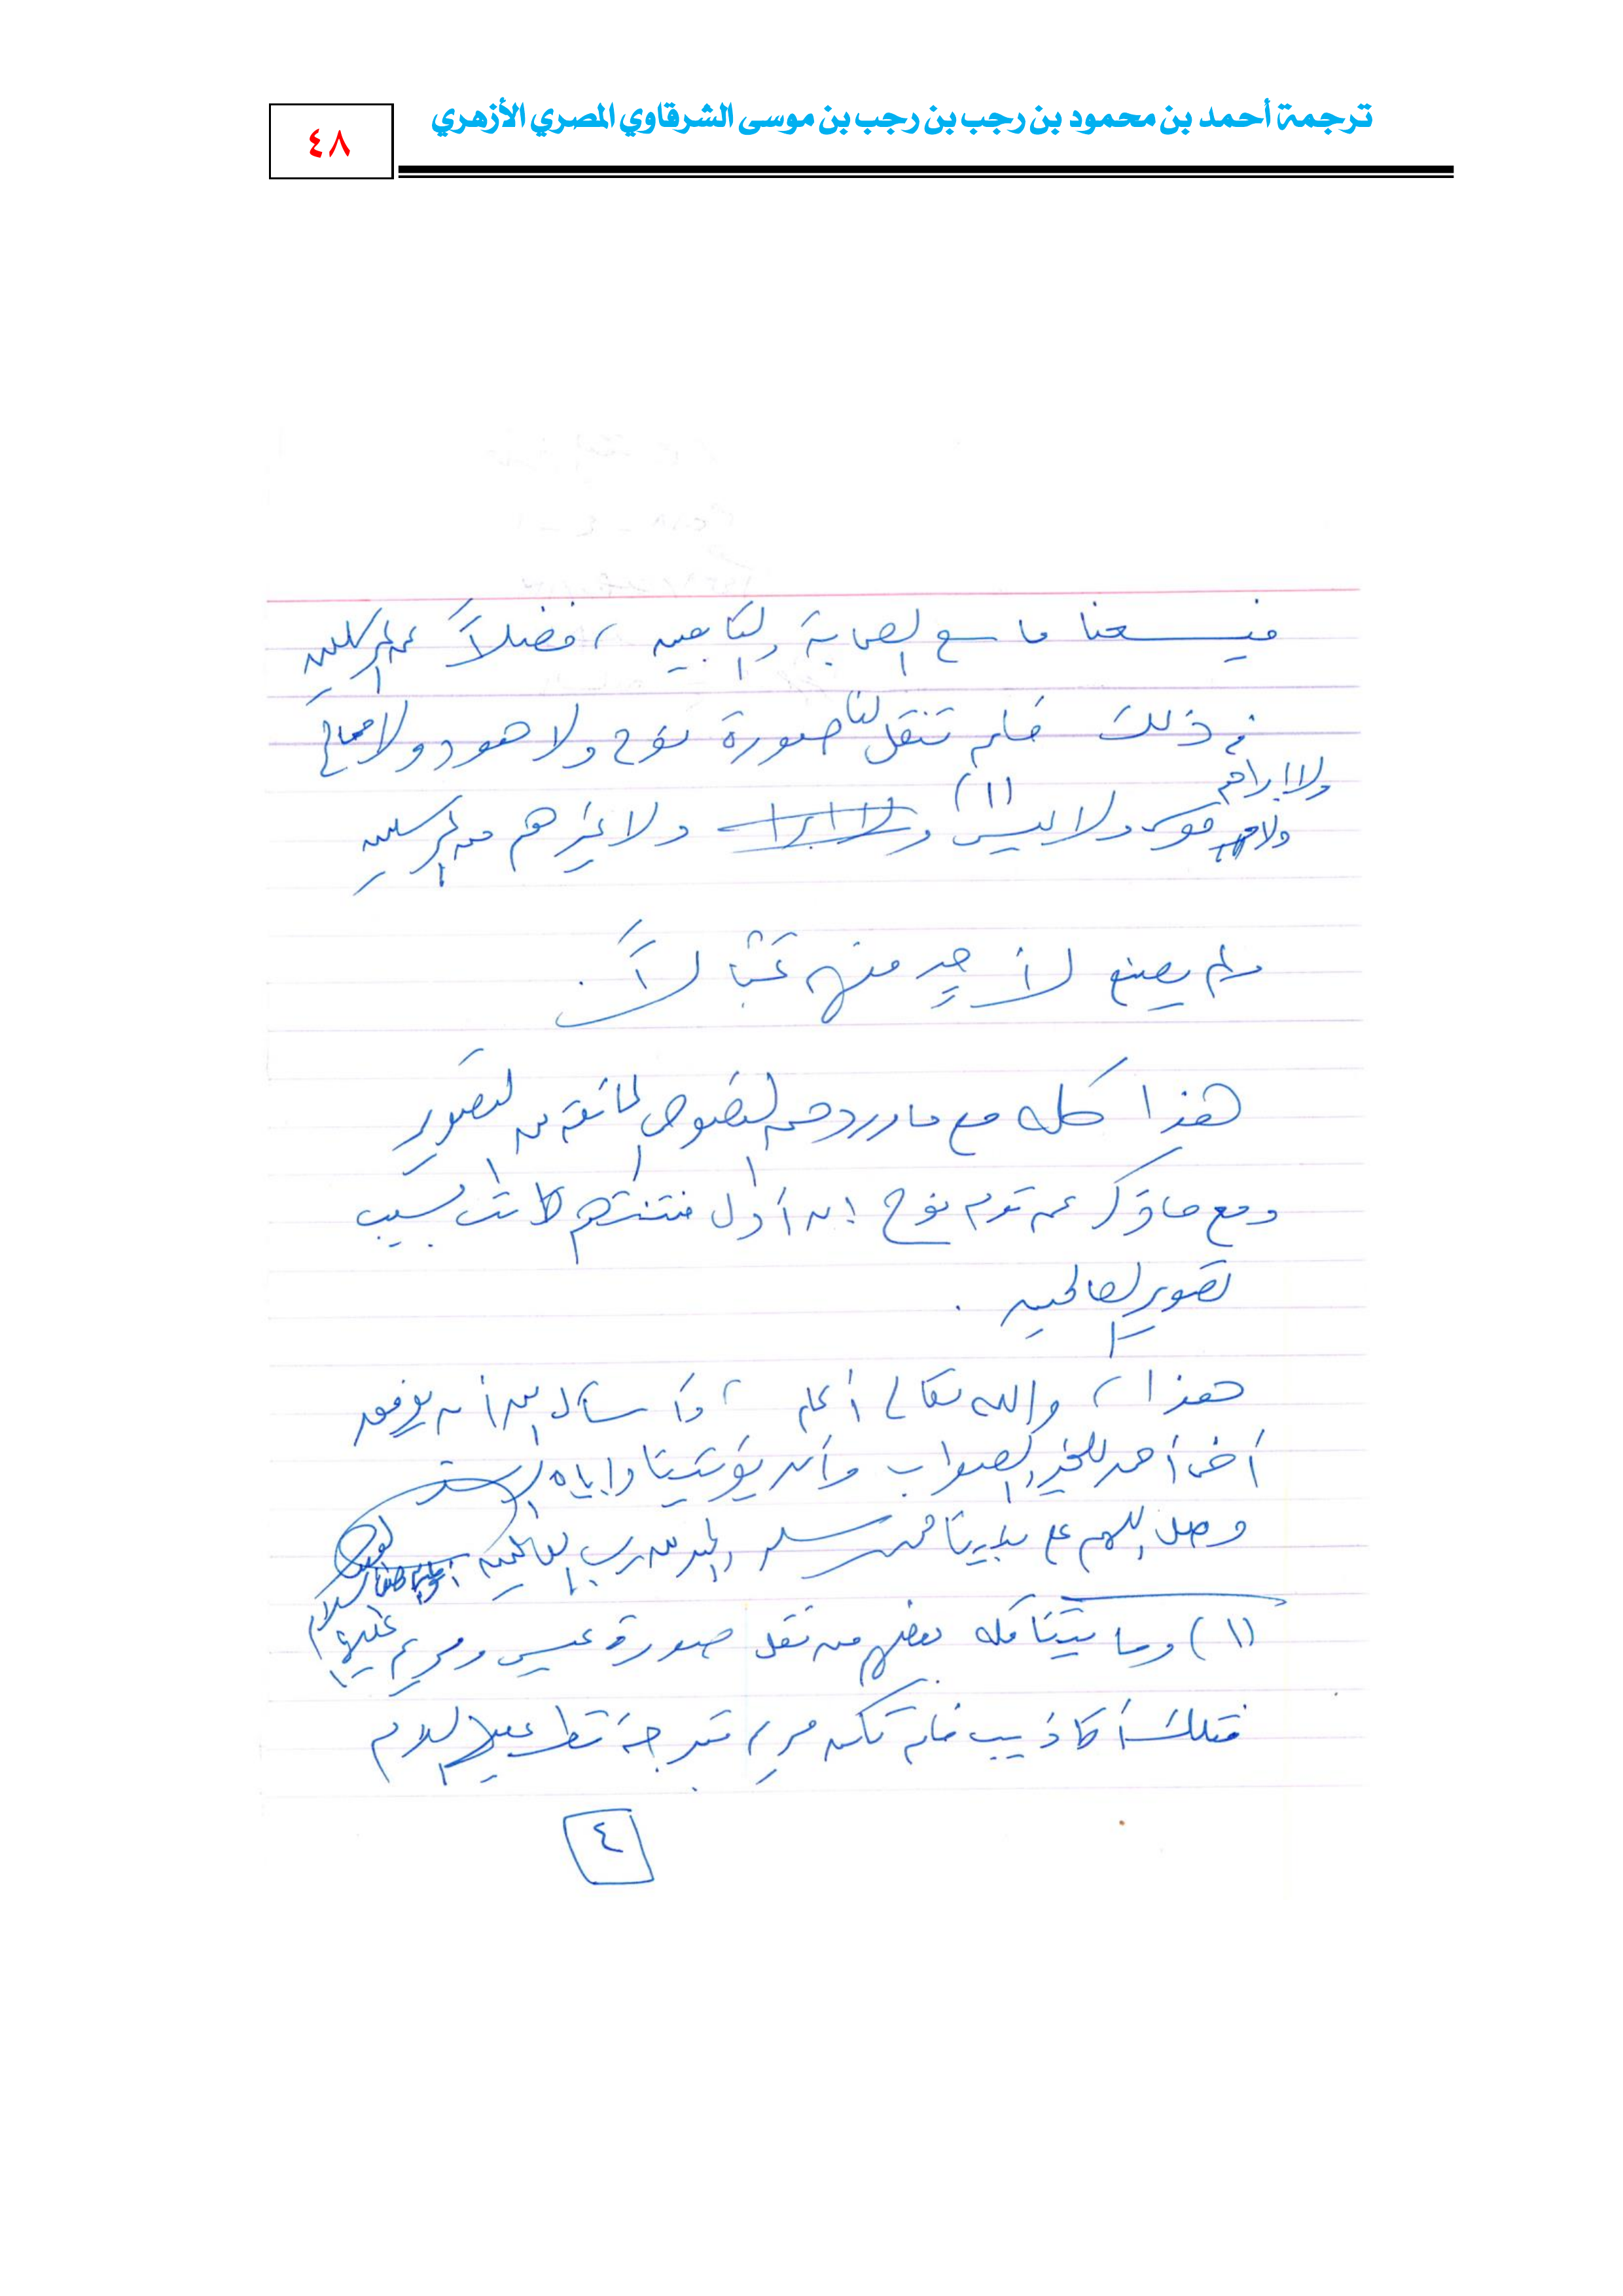 ترجمة أحمد بن محمود بن رجب بن رجب بن موسى الشرقاوي المصري الأزهري
٤٨
فيسعنا ما وسع الصحابة والتابعين، فضلاً عن المرسلين
في ذلك فلم تنقل لنا صورة نوح ولا هود ولا صالح
ولا إبراهيم
ولا موسى ولا عيسى (١) ولا غيرهم من المرسلين
ولم يصنع لأحدٍ منهم تمثالاً.
هذا كله مع ما ورد من النصوص المانعة من التصوير
ومع ما ذكر عن قوم نوح إن أول فتنتهم كانت بسبب
تصوير الصالحين.
هذا، والله تعالى أعلم، وأسأل الله أن يوفق
أخي أحمد للخير والصواب وأن يؤتينا وإياه
وصل اللهم على نبينا محمد وسلم والحمد لله رب العالمين
(١) وما يتناقله بعضهم من نقل صورة عيسى ومريم عليهما
السلام
فتلك أكاذيب فلم تكن مريم متبرجة قط عليها السلام
٤